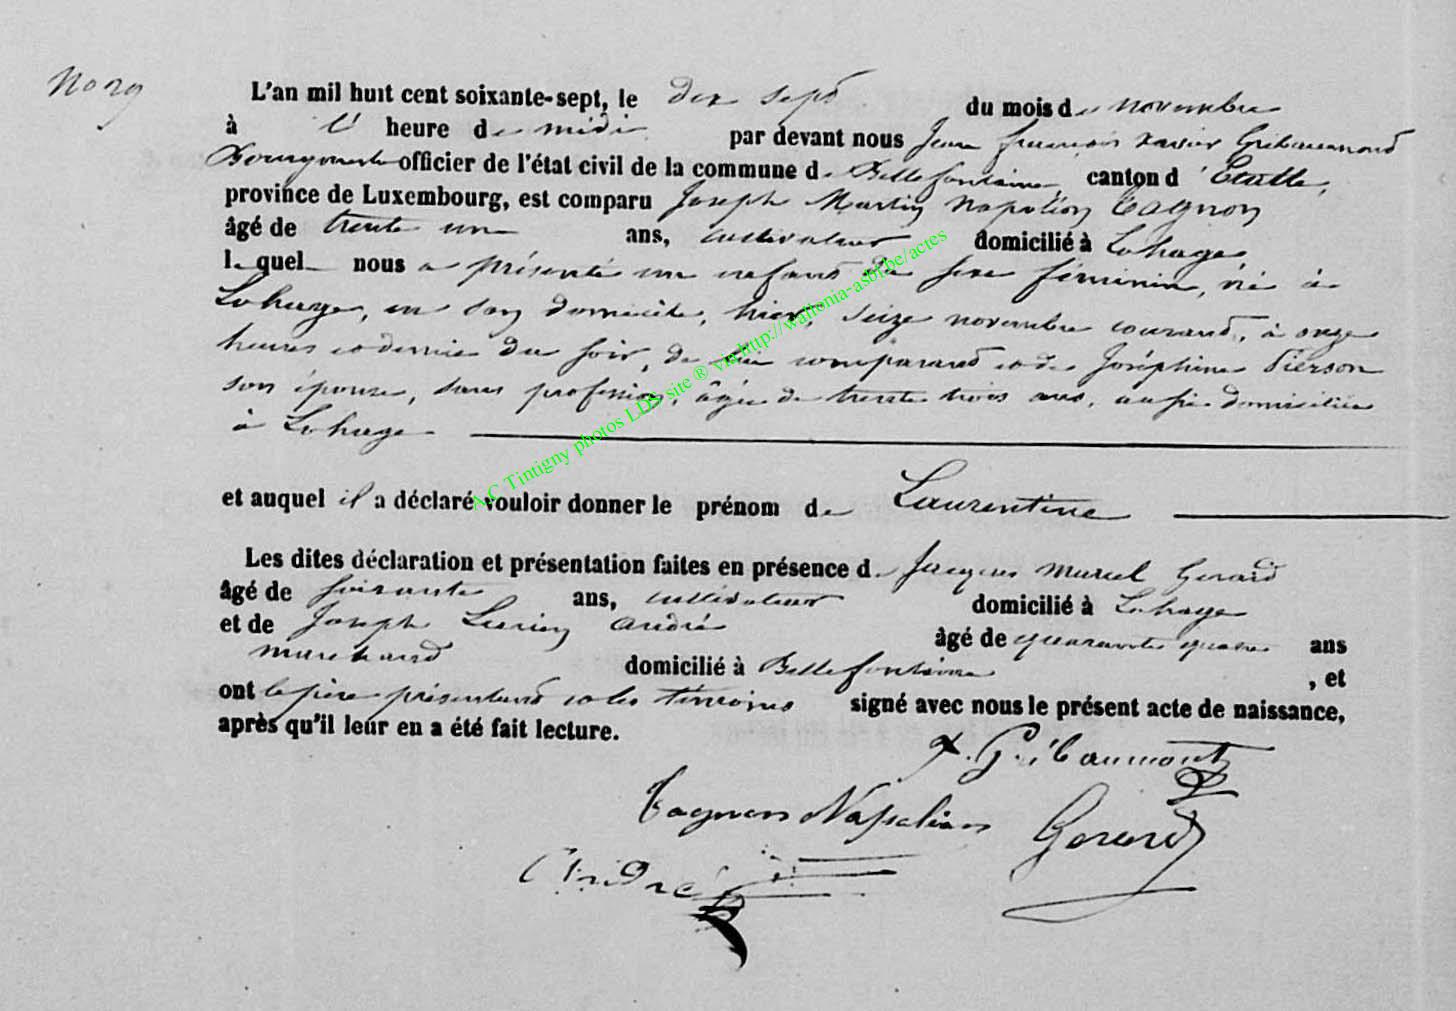 No 29
L'an mil huit cent soixante-sept, le dix sept du mois de novembre
à l' heure de midi par devant nous Jean françois xavier Gribaumont
Bourgmestre officier de l'état civil de la commune de Bellefontaine, canton d'Etalle,
province de Luxembourg, est comparu Joseph Martin Napoléon Tagnon
âgé de trente un ans, cultivateur domicilié à Lahage
lequel nous a présenté un enfant du sexe féminin, né à
Lahage, en son domicile, hier, seize novembre courant, à onze
heures et demie du soir, de lui comparant et de Joséphine Pierson
son épouse, sans profession, âgée de trente trois ans, aussi domiciliée
à Lahage
et auquel il a déclaré vouloir donner le prénom de Laurentine
Les dites déclaration et présentation faites en présence de Jacques Marcel Gerard
âgé de soixante ans, cultivateur domicilié à Lahage
et de Joseph Lucien André âgé de quarante quatre ans
marchand domicilié à Bellefontaine , et
ont le père présentant et les témoins signé avec nous le présent acte de naissance,
après qu'il leur en a été fait lecture.
X. Gribaumont
Tagnon Napoléon Gerard
André
A.C Tintigny photos LDS site ® via http://wallonia-asbl.be/actes